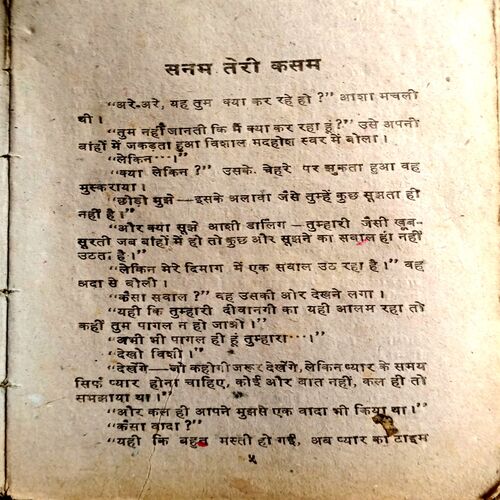 सनम तेरी कसम
“अरे-अरे, यह तुम क्या कर रहे हो ?” आशा मचली
थी ।
“तुम नहीं जानती कि मैं क्या कर रहा हूं ?” उसे अपनी
बांहों में जकड़ता हुआ विशाल मदहोश स्वर में बोला ।
“लेकिन···।”
“क्या लेकिन ?” उसके चेहरे पर झुकता हुआ वह
मुस्कराया ।
“छोड़ो मुझे—इसके अलावा जैसे तुम्हें कुछ सूझता ही
नहीं है ।”
“और क्या सूझे आशी डालिंग—तुम्हारी जैसी खूब-
सूरती जब बांहों में हो तो कुछ और सूझने का सवाल ही नहीं
उठता है ।”
“लेकिन मेरे दिमाग में एक सवाल उठ रहा है ।” वह
अदा से बोली ।
“कैसा सवाल ?” वह उसकी ओर देखने लगा ।
“यही कि तुम्हारी दीवानगी का यही आलम रहा तो
कहीं तुम पागल न हो जाओ ।”
“अभी भी पागल ही हूं तुम्हारा···।”
“देखो विशी ।”
“देखेंगे—जो कहोगी जरूर देखेंगे, लेकिन प्यार के समय
सिर्फ प्यार होना चाहिए, कोई और बात नहीं, कल ही तो
समझाया था ।”
“और कल ही आपने मुझसे एक वादा भी किया था ।”
“कैसा वादा ?”
“यही कि बहुत मस्ती हो गई, अब प्यार का टाइम
५